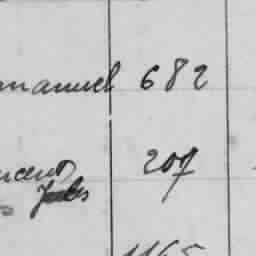 manuel 682
207
Jules
1165